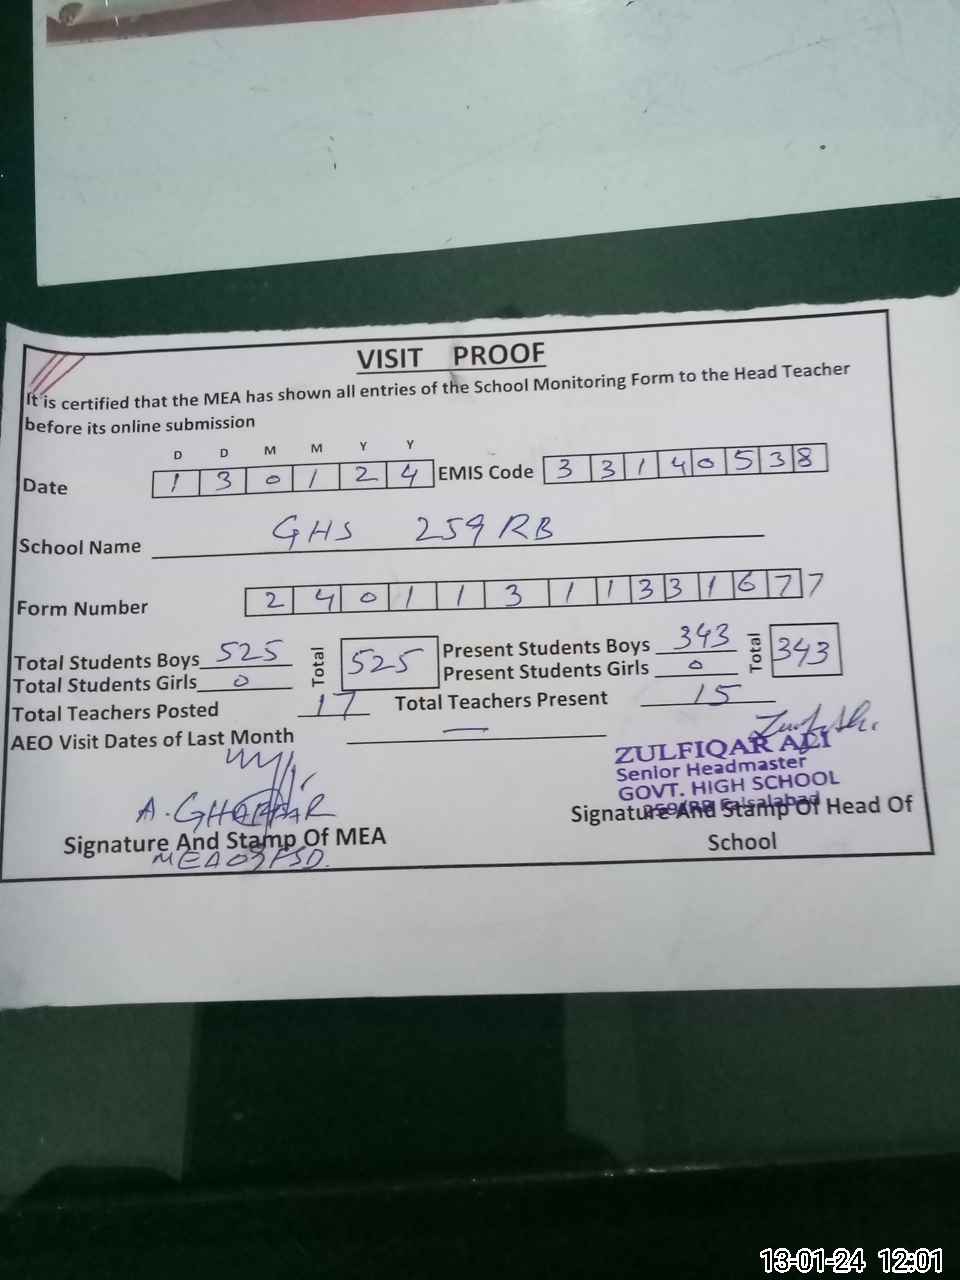 VISIT PROOF
It is certified that the MEA has shown all entries of the School Monitoring Form to the Head Teacher
before its online submission
D D M M Y Y
Date 1 3 0 1 2 4 EMIS Code 3 3 1 4 0 5 3 8
School Name GHS 259 RB
Form Number 2 4 0 1 1 3 1 1 3 3 1 6 7 7
Total Students Boys 525 Total 525 Present Students Boys 343 Total 343
Total Students Girls 0 Present Students Girls 0
Total Teachers Posted 17 Total Teachers Present 15
AEO Visit Dates of Last Month —
ZULFIQAR ALI
Senior Headmaster
GOVT. HIGH SCHOOL
259/RB Faisalabad
A. GHAFFAR
Signature And Stamp Of MEA
MEA 03 FSD.
Signature And Stamp Of Head Of
School
13-01-24 12:01